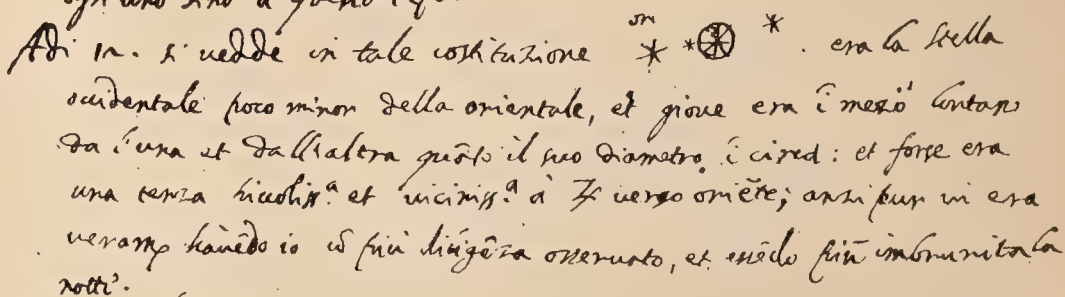 ogni uno sino a questo
Adi 12. si vedde in tale costituzione ori * *⊛ * . era la stella
occidentale poco minor della orientale, et giove era ĩ mezo lontano
da l'una et dall'altra quãto il suo diametro ĩ circa: et forse era
una terza piccoliss.a et viciniss.a à ♃ verso oriẽte; anzi pur vi era
veramẽ havẽdo io cõ più diligẽza osservato, et essẽdo più imbrunita la
notte.